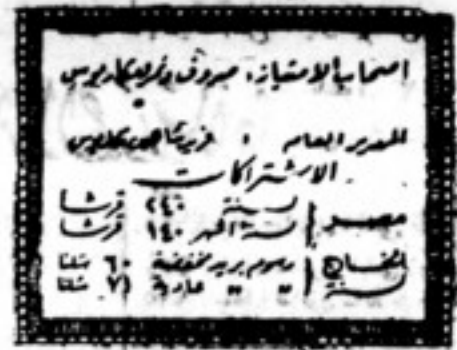 اصحاب الامتياز: صروف ونمر ومكاريوس
المدير العام :
الاشتراكات
مصر | سنة ٢٤٠ قرشا
ستة اشهر ١٤٠ قرشا
الخارج | برسوم بريد مخفضة ٦٠ شلنا
سنة | عادية ٧١ شلنا